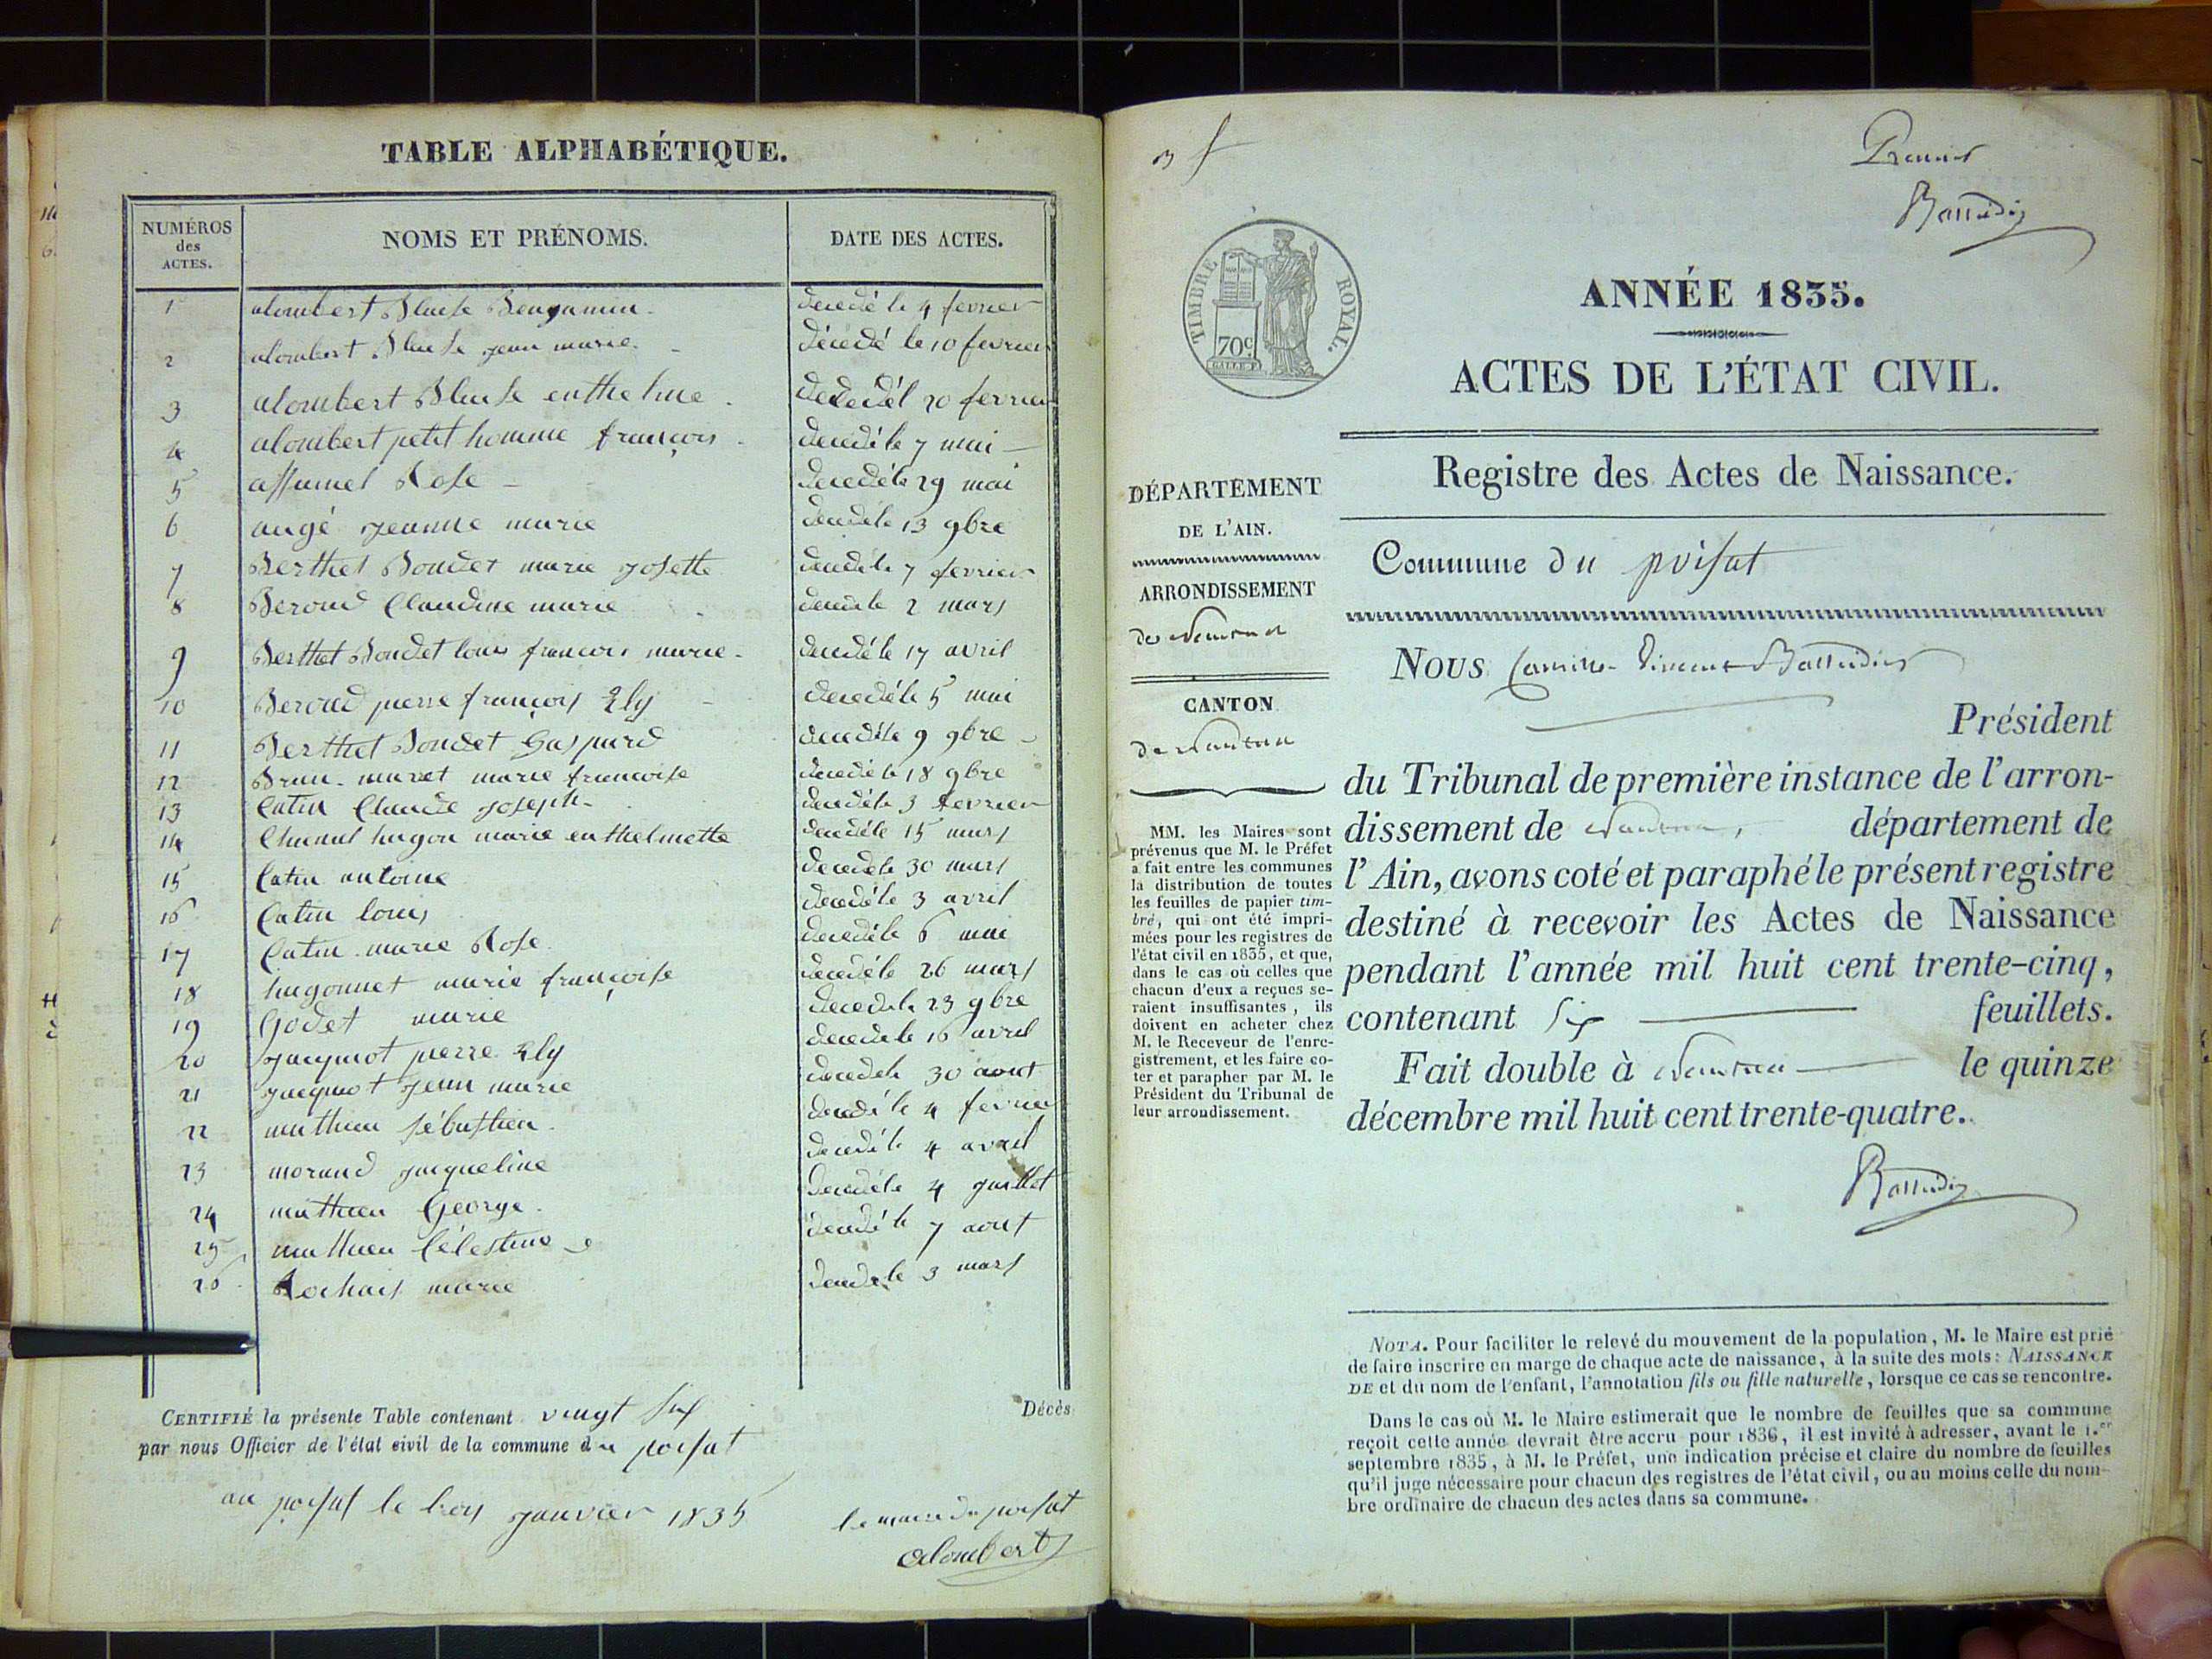 TABLE ALPHABÉTIQUE.
NUMÉROS des ACTES. NOMS ET PRÉNOMS. DATE DES ACTES.
1 alombert Bluse Bengamin decedé le 4 fevrier
2 alombert Bluse jean marie décedé le 10 fevrier
3 alombert Bluse enthelme 20 fevrier
4 alombert petit homme françois decedé le 7 mai
5 assumel Rose decedé le 29 mai
6 augé jeanne marie decedé le 13 9bre
7 Berthet Bondet marie josette decedé le 7 fevrier
8 Beroud Claudine marie decedé le 2 mars
9 Berthet Bondet louis francois marie decedé le 17 avril
10 Beroud pierre françois Ely decedé le 5 mai
11 Berthet Bondet Gaspard decedé le 9 9bre
12 Brun-muret marie francoise decedé le 18 9bre
13 Catin Claude joseph decedé le 3 fevrier
14 hugon marie enthelmette decedé le 15 mars
15 Catin antoine decedé le 30 mars
16 Catin louis decedé le 3 avril
17 Catin marie Rose decedé le 6 mai
18 hugonnet marie françoise decedé le 26 mars
19 Godet marie decedé le 23 9bre
20 jacquiot pierre Ely decedé le 16 avril
21 jacquiot jean marie decedé le 30 aout
22 mathieu sébastien decedé le 4 fevrier
23 morand jacqueline decedé le 4 avril
24 mathieu George decedé le 4 juillet
25 mathieu Célestine decedé le 7 aout
26 Rochais marie decedé le 3 mars
CERTIFIÉ la présente Table contenant vingt six Décès
par nous Officier de l'état civil de la commune du poisat
au poisat le trois janvier 1835
le maire du poisat
alombert
Premier
TIMBRE ROYAL.
70c.
ANNÉE 1835.
ACTES DE L'ÉTAT CIVIL.
Registre des Actes de Naissance.
DÉPARTEMENT
DE L'AIN.
ARRONDISSEMENT
de Nantua
CANTON
de Nantua
MM. les Maires sont
prévenus que M. le Préfet
a fait entre les communes
la distribution de toutes
les feuilles de papier tim-
bré, qui ont été impri-
mées pour les registres de
l'état civil en 1835, et que,
dans le cas où celles que
chacun d'eux a reçues se-
raient insuffisantes, ils
doivent en acheter chez
M. le Receveur de l'enre-
gistrement, et les faire co-
ter et parapher par M. le
Président du Tribunal de
leur arrondissement.
Commune du poisat
NOUS Camille Vincent
Président
du Tribunal de première instance de l'arron-
dissement de Nantua, département de
l'Ain, avons coté et paraphé le présent registre
destiné à recevoir les Actes de Naissance
pendant l'année mil huit cent trente-cinq,
contenant six feuillets.
Fait double à Nantua le quinze
décembre mil huit cent trente-quatre.
NOTA. Pour faciliter le relevé du mouvement de la population, M. le Maire est prié
de faire inscrire en marge de chaque acte de naissance, à la suite des mots: NAISSANCE
DE et du nom de l'enfant, l'annotation fils ou fille naturelle, lorsque ce cas se rencontre.
Dans le cas où M. le Maire estimerait que le nombre de feuilles que sa commune
reçoit cette année devrait être accru pour 1836, il est invité à adresser, avant le 1.er
septembre 1835, à M. le Préfet, une indication précise et claire du nombre de feuilles
qu'il juge nécessaire pour chacun des registres de l'état civil, ou au moins celle du nom-
bre ordinaire de chacun des actes dans sa commune.